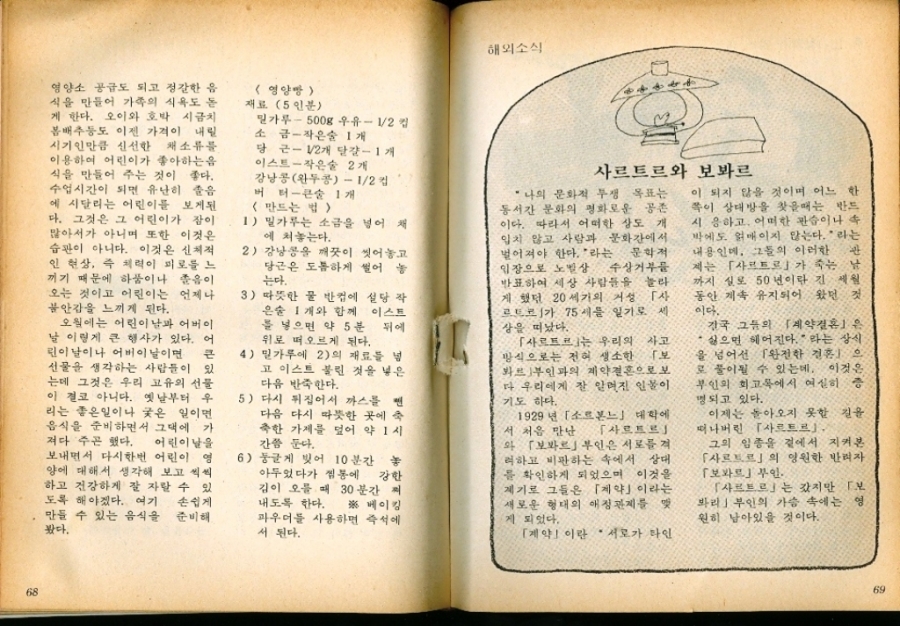 영양소 공급도 되고 정갈한 음
식을 만들어 가족의 식욕도 돋
게 한다. 오이와 호박 시금치
봄배추등도 이젠 가격이 내릴
시기인만큼 싱선한 채소류를
이용하여 어린이가 좋아하는음
식을 만들어 주는 것이 좋다.
수업시간이 되면 유난히 졸음
에 시달리는 어린이를 보게된
다. 그것은 그 어린이가 잠이
많아서가 아니며 또한 이것은
습관이 아니다. 이것은 신체적
인 현상, 즉 체력이 피로를 느
끼기 때문에 하품이나 졸음이
오는 것이고 어린이는 언제나
불안감을 느끼게 된다.
오월에는 어린이날과 어버이
날 이렇게 큰 행사가 있다. 어
린이날이나 어버이날이면 큰
선물을 생각하는 사람들이 있
는데 그것은 우리 고유의 선물
이 결코 아니다. 옛날부터 우
리는 좋은일이나 궂은 일이면
음식을 준비하면서 그댁에 가
져다 주곤 했다. 어린이날을
보내면서 다시한번 어린이 영
양에 대해서 생각해 보고 씩씩
하고 건강하게 잘 자랄 수 있
도록 해야겠다. 여기 손쉽게
만들 수 있는 음식을 준비해
봤다.
68
( 영양빵 )
재료 (5인분)
밀가루– 500g 우유– 1/2 컵
소 금–작은술 1개
당 근– 1/2개 달걀– 1개
이스트–작은술 2개
강낭콩(완두콩) – 1/2컵
버 터–큰술 1개
( 만드는 법 )
1) 밀가루는 소금을 넣어 채
에 쳐놓는다.
2) 강낭콩을 깨끗이 씻어놓고
당근은 도톰하게 썰어 놓
는다.
3) 따뜻한 물 반컵에 설탕 작
은술 1개와 함께 이스트
를 넣으면 약 5분 뒤에
위로 떠오르게 된다.
4) 밀가루에 2)의 재료를 넣
고 이스트 불린 것을 넣은
다음 반죽한다.
5) 다시 뒤집어서 까스를 뺀
다음 다시 따뜻한 곳에 축
축한 가제를 덮어 약 1시
간쯤 둔다.
6) 둥글게 빚어 10분간 놓
아두었다가 찜통에 강한
김이 오를 때 30분간 쪄
내도록 한다. ※ 베이킹
파우더를 사용하면 즉석에
서 된다.
해외소식
사르트르와 보봐르
“나의 문화적 투쟁 목표는
동서간 문화의 평화로운 공존
이다. 따라서 어떠한 상도 개
입치 않고 사람과 문화간에서
벌어져야 한다.”라는 문학적
입장으로 노벨상 수상거부를
발표하여 세상 사람들을 놀라
게 했던 20세기의 거성 「사
르트르」가 75세를 일기로 세
상을 떠났다.
「사르트르」는 우리의 사고
방식으로는 전혀 생소한 「보
봐르」부인과의 계약결혼으로보
다 우리에게 잘 알려진 인물이
기도 하다.
1929년 「소르본느」 대학에
서 처음 만난 「사르트르」
와 「보봐르」부인은 서로를격
려하고 비판하는 속에서 상대
를 확인하게 되었으며 이것을
계기로 그들은 「계약」이라는
새로운 형태의 애정관계를 맺
게 되었다.
「계약」이란 “서로가 타인
이 되지 않을 것이며 어느 한
쪽이 상대방을 찾을때는 반드
시 응하고, 어떠한 관습이나 속
박에도 얽매이지 않는다.”라는
내용인데, 그들의 이러한 관
계는 「사르트르」가 죽는 날
까지 실로 50년이란 긴 세월
동안 계속 유지되어 왔던 것
이다.
결국 그들의 「계약결혼」은
“싫으면 헤어진다.”라는 상식
을 넘어선 「완전한 결혼」으
로 풀이될 수 있는데, 이것은
부인의 회고록에서 여실히 증
명되고 있다.
이제는 돌아오지 못할 길을
떠나버린 「사르트르」.
그의 임종을 곁에서 지켜본
「사르트르」의 영원한 반려자
「보봐르」부인.
「사르트르」는 갔지만 「보
봐르」부인의 가슴 속에는 영
원히 남아있을 것이다.
69